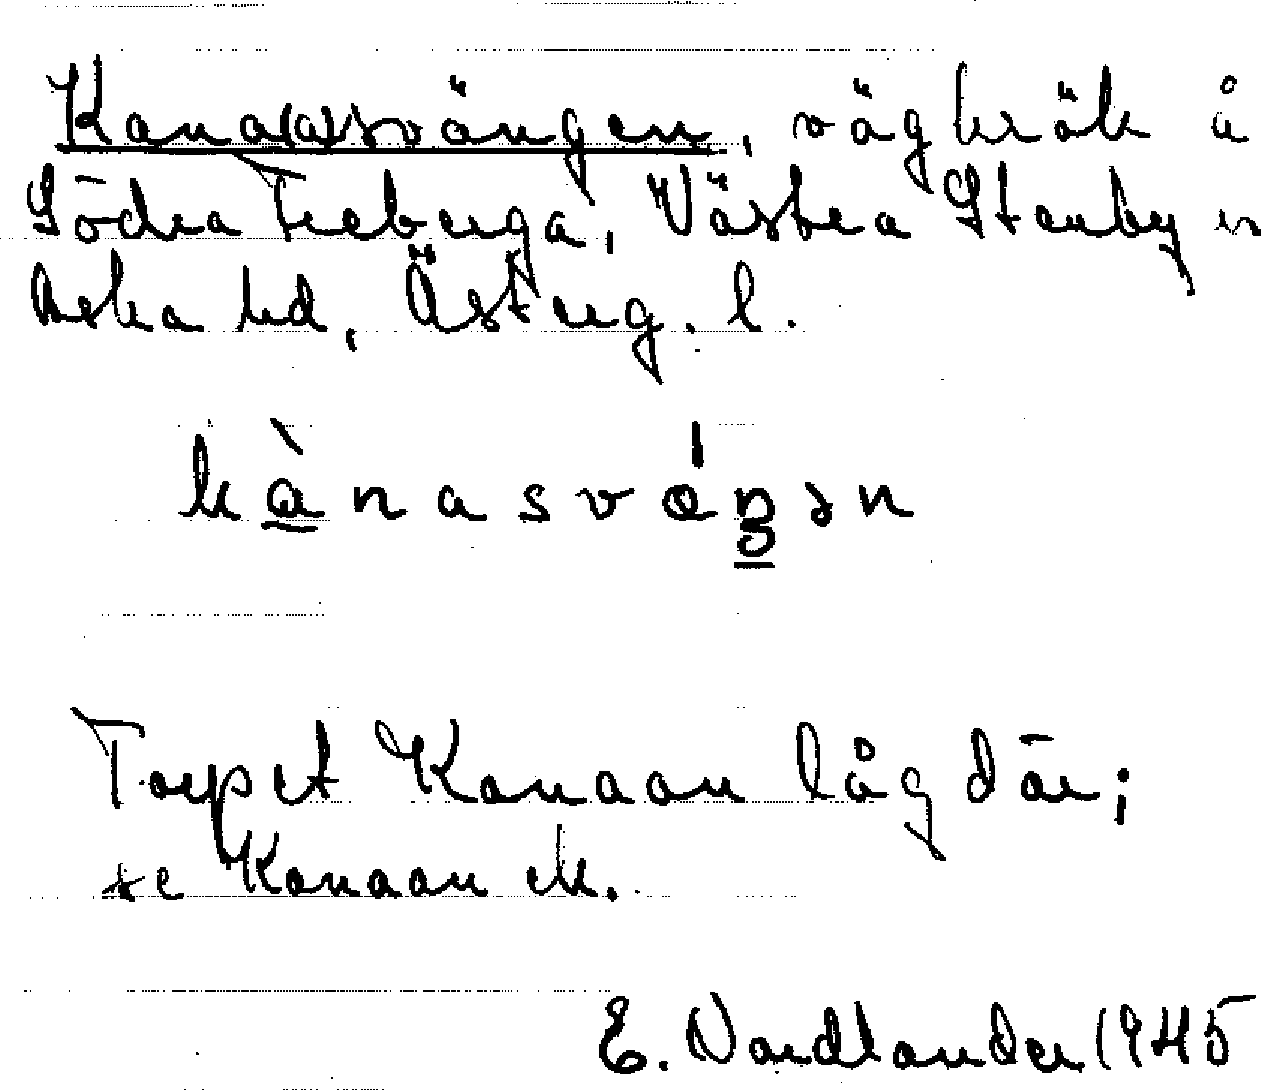 Kana(a)svängen, vägkrök å
Södra Freberga, Västra Stenby sn
Aska hd, Österg. l.
kànasváŋən
Torpet Kanaan låg där;
se Kanaan ek.
E. Nordlander 1945